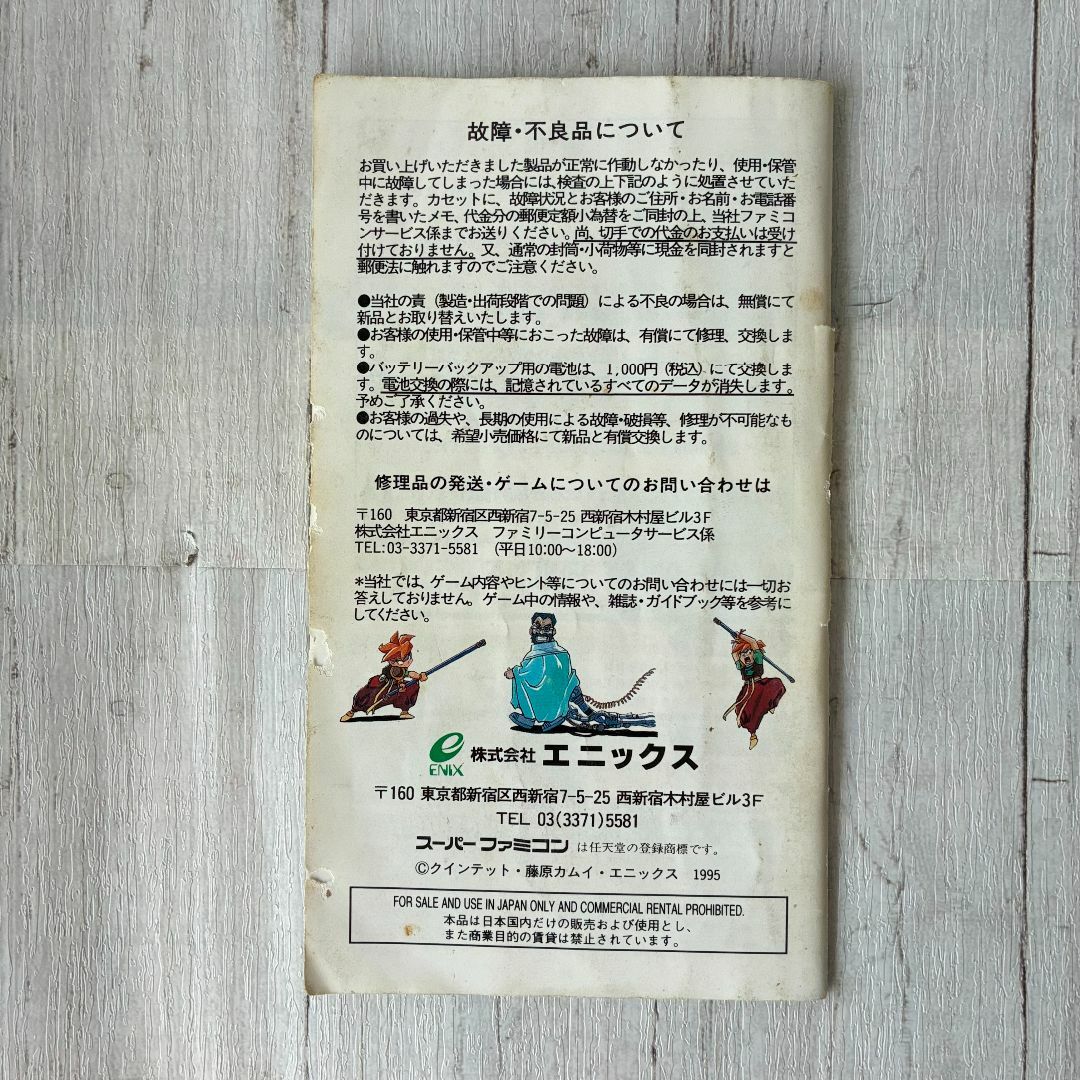 故障・不良品について
お買い上げいただきました製品が正常に作動しなかったり、使用・保管
中に故障してしまった場合には、検査の上下記のように処置させていた
だきます。カセットに、故障状況とお客様のご住所・お名前・お電話番
号を書いたメモ、代金分の郵便定額小為替をご同封の上、当社ファミコ
ンサービス係までお送りください。尚、切手での代金のお支払いは受け
付けておりません。又、通常の封筒・小荷物等に現金を同封されますと
郵便法に触れますのでご注意ください。
●当社の責（製造・出荷段階での問題）による不良の場合は、無償にて
新品とお取り替えいたします。
●お客様の使用・保管中等におこった故障は、有償にて修理、交換しま
す。
●バッテリーバックアップ用の電池は、1,000円（税込）にて交換しま
す。電池交換の際には、記憶されているすべてのデータが消失します。
予めご了承ください。
●お客様の過失や、長期の使用による故障・破損等、修理が不可能なも
のについては、希望小売価格にて新品と有償交換します。
修理品の発送・ゲームについてのお問い合わせは
〒160 東京都新宿区西新宿7-5-25 西新宿木村屋ビル3F
株式会社エニックス ファミリーコンピュータサービス係
TEL:03-3371-5581 （平日10:00〜18:00）
*当社では、ゲーム内容やヒント等についてのお問い合わせには一切お
答えしておりません。ゲーム中の情報や、雑誌・ガイドブック等を参考に
してください。
e ENIX 株式会社 エニックス
〒160 東京都新宿区西新宿7-5-25 西新宿木村屋ビル3F
TEL 03(3371)5581
スーパーファミコン は任天堂の登録商標です。
©クインテット・藤原カムイ・エニックス 1995
FOR SALE AND USE IN JAPAN ONLY AND COMMERCIAL RENTAL PROHIBITED.
本品は日本国内だけの販売および使用とし、
また商業目的の賃貸は禁止されています。